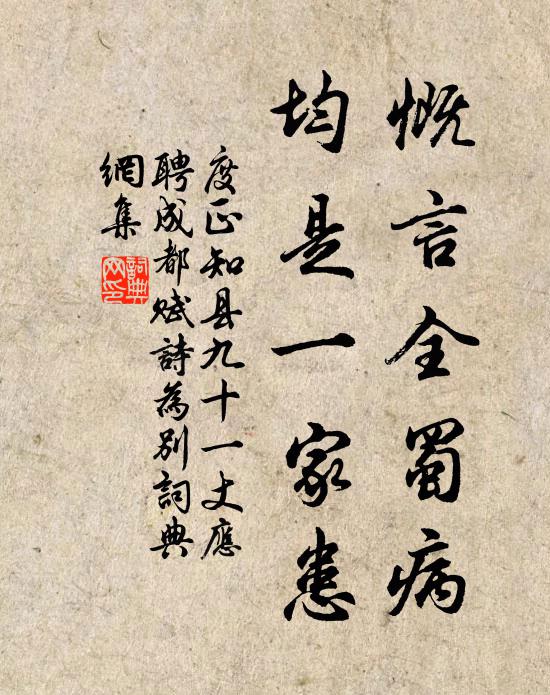 慨言全蜀病
均是一家患
度正知县九十一丈應
聘成都赋詩為别詞典
網集
詞典網印